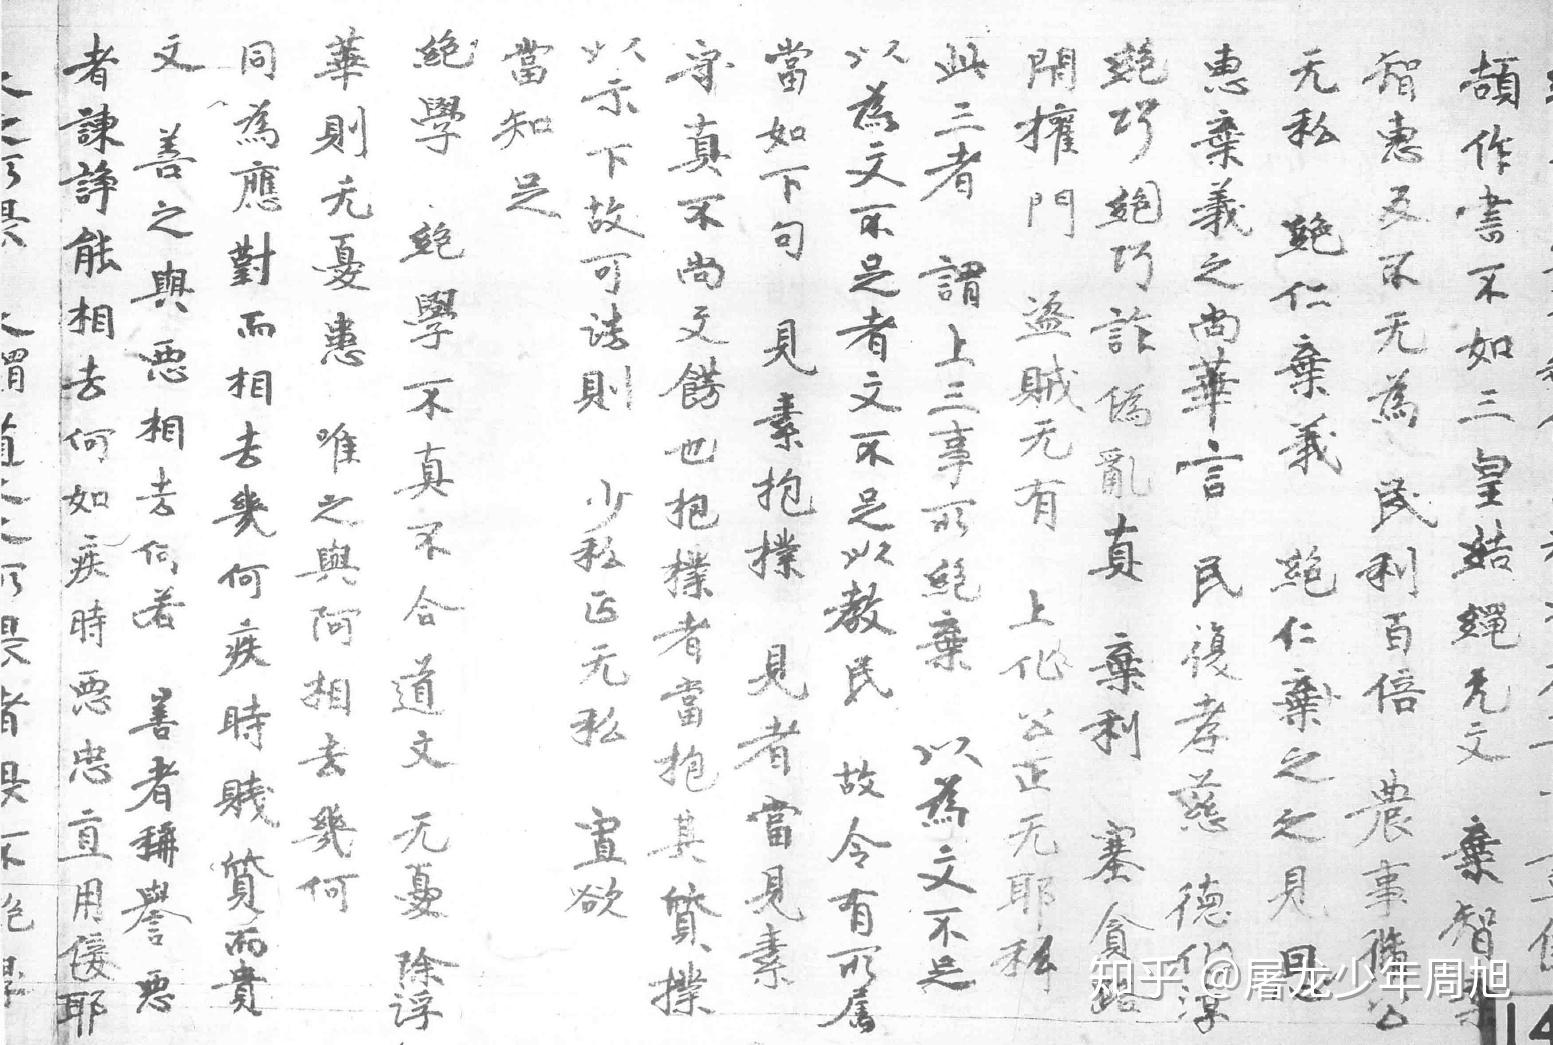 頡作書不如三皇結繩无文 棄智
智惠反不无為 民利百倍 農事脩公
无私 絕仁棄義 絕仁棄之之見恩
惠棄義之尚華言 民復孝慈 德化淳
絕巧 絕巧詐偽亂真 棄利 塞貪路
閉權門 盜賊无有 上化公正无耶私
此三者 謂上三事所絕棄 以為文不足
以為文不足者文不足以教民 故令有所屬
當如下句 見素抱樸 見者當見素
守真不尚文餝也抱樸者當抱其質樸
以示下故可法則 少私 正无私 寡欲
當知足
絕學 絕學不真不合道文 无憂 除浮
華則无憂患 唯之與阿相去幾何
同為應對而相去幾何疾時賤質而貴
文 善之與惡相去何若 善者稱譽惡
者諫諍能相去何如疾時惡忠直用佞耶
人之所畏 人謂道人人所畏者畏不絕學
知乎 @屠龙少年周旭
14